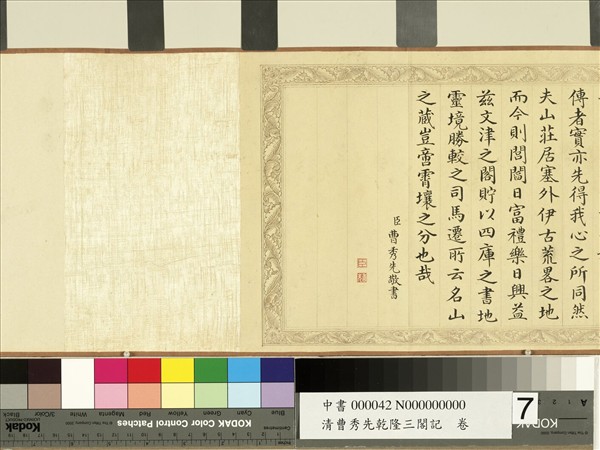 傳者實亦先得我心之所同然
夫山莊居塞外伊古荒畧之地
而今則閭閻日富禮樂日興益
兹文津之閣貯以四庫之書地
靈境勝較之司馬遷所云名山
之藏豈啻霄壤之分也哉
臣曹秀先敬書
Blue
Cyan
Green
Yellow
Red
Magenta
White
3/Color
Black
KODAK Color Control Patches
Kodak
中書 000042 N000000000
清曹秀先乾隆三閣記 卷
7
A